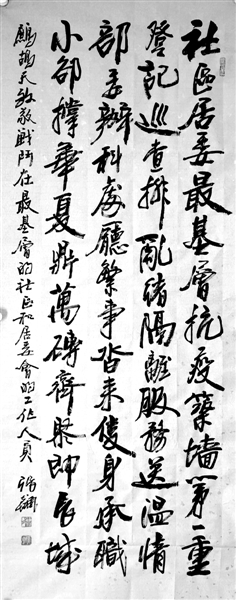 社區居委最基層抗疫築墻第一重
登記巡查排亂緒隔離服務送溫情
部委辦科處廳繁事沓來隻身承職
小卻撐華夏鼎萬磚齊聚即長城
鷓鴣天致敬戰鬥在最基層的社區和居委會的工作人員